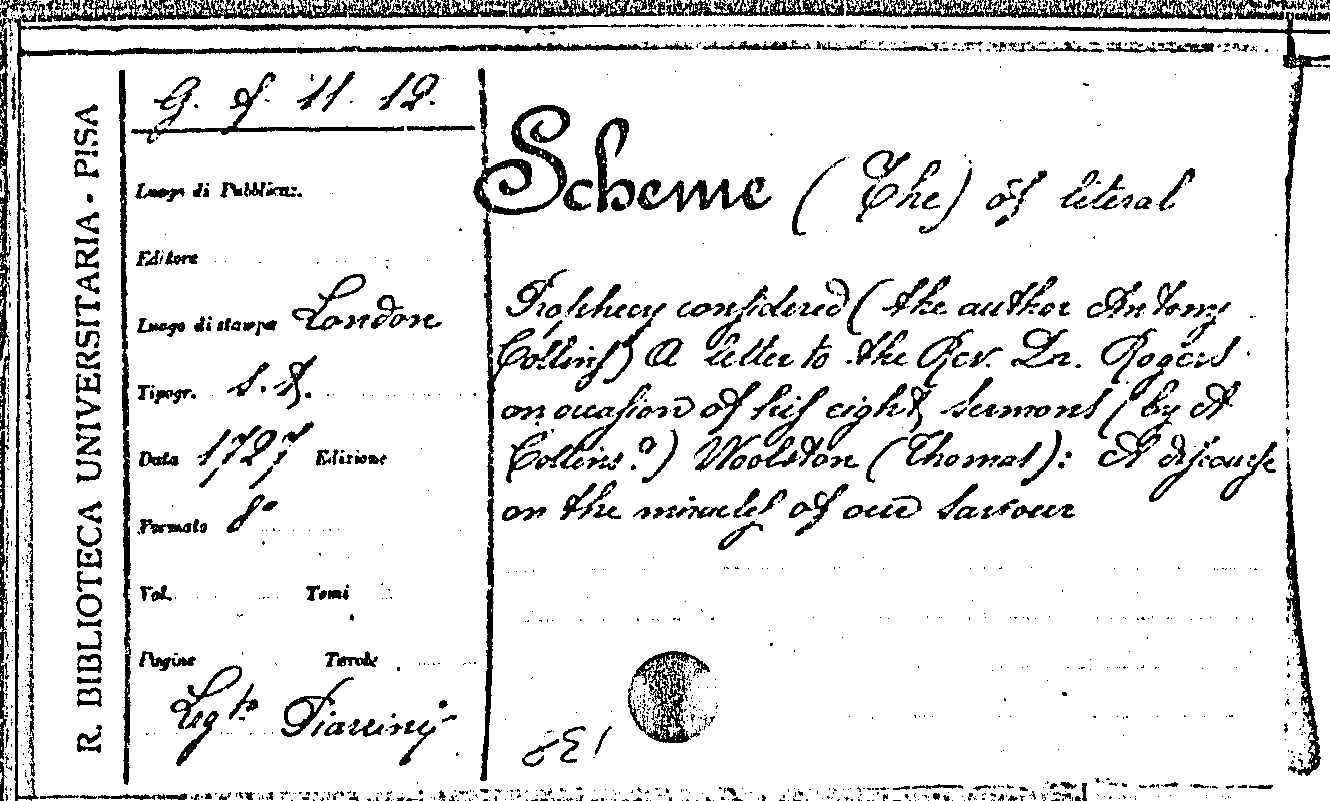 R. BIBLIOTECA UNIVERSITARIA - PISA
G. f. 11. 12.
Luogo di Pubblicaz.
Editore
Luogo di stampa London
Tipogr. s. t.
Data 1727 Edizione
Formato 8°
Vol. Tomi
Pagine Tavole
Leg.to
Scheme (The) of literal
Prophecy considered (the author Antony
Collins) A letter to the Rev. Dr. Rogers
on occasion of his eight sermons (by A
Collins?) Woolston (Thomas): A discourse
on the miracles of our Saviour
138